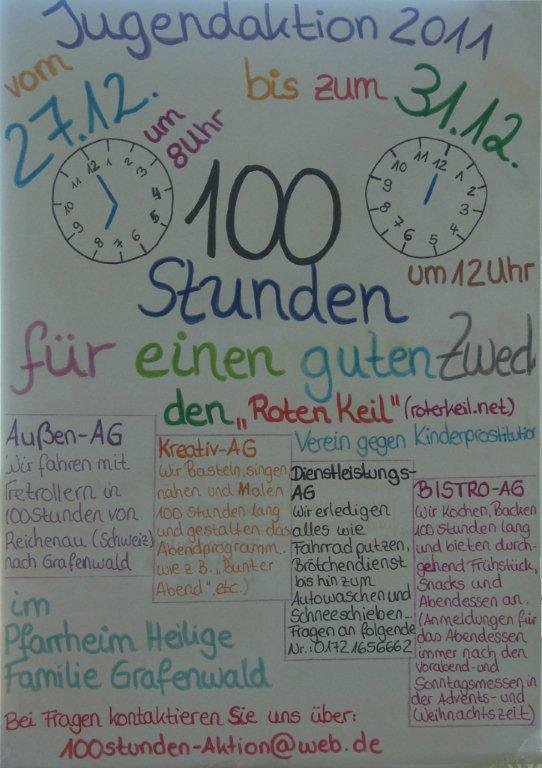 Jugendaktion 2011
vom
27.12.
um
8Uhr
bis zum
31.12.
12 1 2 3 4 5 6 7 8 9 10 11
100
11 12 1 2 3 4 5 6 7 8 9 10
um 12 Uhr
Stunden
für einen guten Zweck
den „Roten Keil" (roterkeil.net)
Verein gegen Kinderprostitution
Außen-AG
Wir fahren mit
Tretrollern in
100 Stunden von
Reichenau (Schweiz)
nach Grafenwald
Kreativ-AG
Wir Basteln, singen,
nähen und Malen
100 Stunden lang
und gestalten das
Abendprogramm.
(wie z.B. „Bunter
Abend" etc.)
Dienstleistungs-
AG
Wir erledigen
alles wie
Fahrrad putzen,
Brötchendienst
bis hin zum
Autowaschen und
Schneeschieben...
Fragen an folgende
Nr.: 01721656662
BISTRO-AG
Wir Kochen, Backen
100 stunden lang
und bieten durch-
gehend Frühstück,
Snacks und
Abendessen an.
(Anmeldungen für
das Abendessen
immer nach den
Vorabend- und
Sonntagsmessen in
der Advents- und
Weihnachtszeit)
im
Pfarrheim Heilige
Familie Grafenwald
Bei Fragen kontaktieren Sie uns über:
100stunden-Aktion@web.de